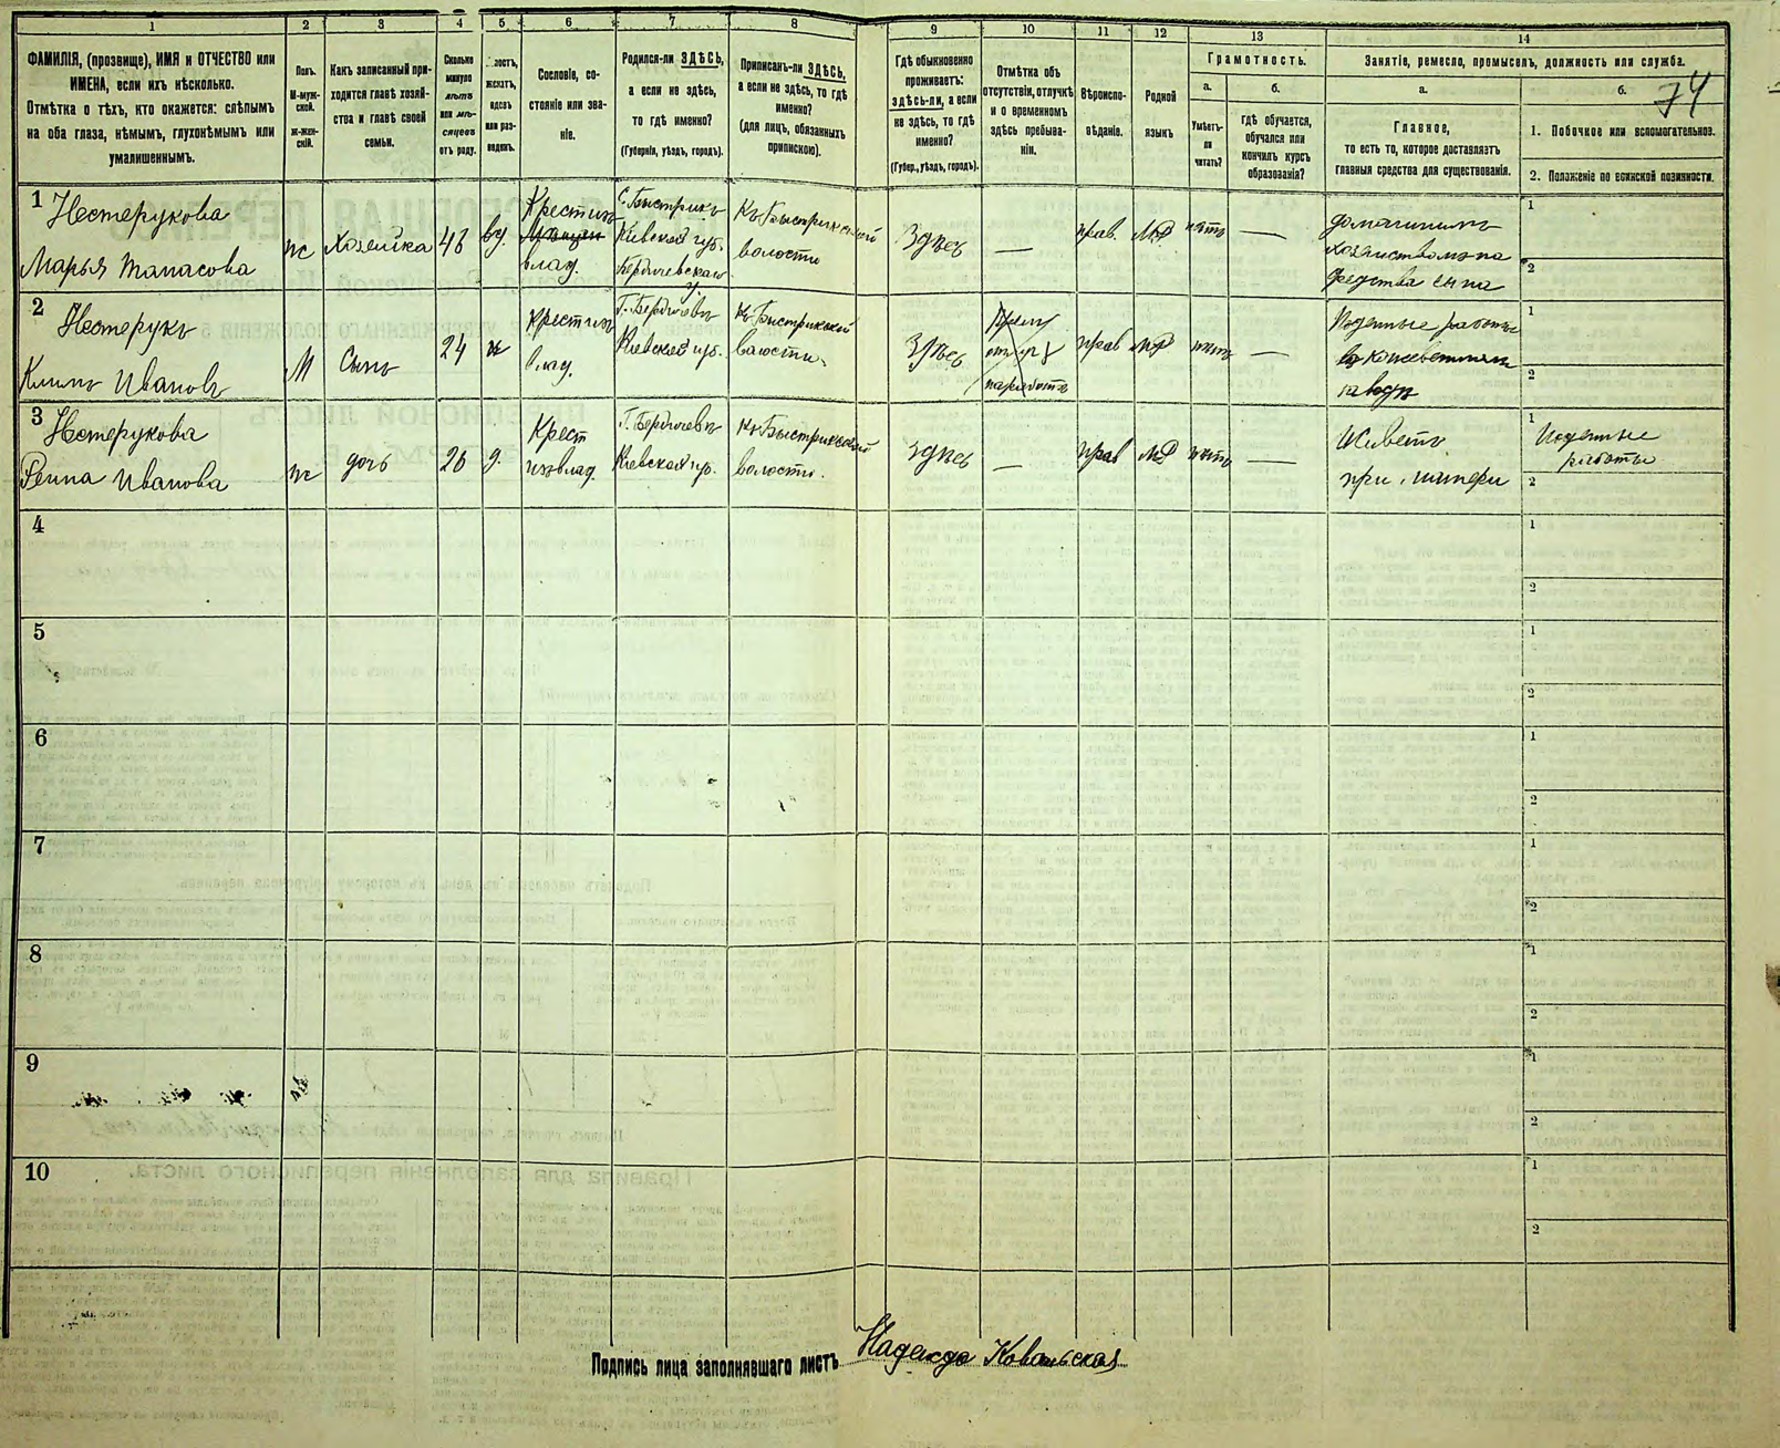 1 2 3 4 5 6 7 8 9 10 11 12 13 14
ФАМИЛІЯ, (прозвище), ИМЯ и ОТЧЕСТВО или
ИМЕНА, если ихъ нѣсколько.
Отмѣтка о тѣхъ, кто окажется: слѣпымъ
на оба глаза, нѣмымъ, глухонѣмымъ или
умалишеннымъ.
Полъ.
М-муж-
ской.
ж-жен-
скій.
Какъ записанный при-
ходится главѣ хозяй-
ства и главѣ своей
семьи.
Сколько
минуло
лѣтъ
или мѣ-
сяцевъ
отъ роду.
лостъ,
женатъ,
вдовъ
или раз-
веденъ.
Сословіе, со-
стояніе или зва-
ніе.
Родился-ли ЗДѢСЬ,
а если не здѣсь,
то гдѣ именно?
(Губернія, уѣздъ, городъ).
Приписанъ-ли ЗДѢСЬ,
а если не здѣсь, то гдѣ
именно?
(для лицъ, обязанныхъ
припискою).
Гдѣ обыкновенно
проживаетъ:
здѣсь-ли, а если
не здѣсь, то гдѣ
именно?
(Губер., уѣздъ, городъ).
Отмѣтка объ
отсутствіи, отлучкѣ
и о временномъ
здѣсь пребыва-
ніи.
Вѣроиспо-
вѣданіе.
Родной
языкъ
Грамотность.
а.
Умѣетъ-
ли
читать?
б.
гдѣ обучается,
обучался или
кончилъ курсъ
образованія?
Занятіе, ремесло, промыселъ, должность или служба.
74
а.
Главное,
то есть то, которое доставляетъ
главныя средства для существованія.
б.
1. Побочное или вспомогательное.
2. Положеніе по воинской повинности.
1 Нестерукова
Марья Танасова
ж
Хозяйка
вд.
Крестьян
влад.
С. Быстрикъ
Кіевской губ.
Бердичевскаго
у.
Къ Быстрикской
волости
Здѣсь
—
прав.
МР
нѣтъ
—
домашнимъ
хозяйствомъ на
средства сына
1
2
2 Нестерукъ
Климъ Ивановъ
М
Сынъ
24
х
Крестьян
влад.
Г. Бердичевъ
Кіевской губ.
Къ Быстрикской
волости
Здѣсь
прав
МР
нѣтъ
—
Поденные работы
заводѣ
1
2
3 Нестерукова
Ивановна
ж
дочь
26
д.
Крест
изъ влад.
Г. Бердичевъ
Кіевской губ.
Къ Быстрикской
волости.
здѣсь
—
прав
МР
нѣтъ
—
Живетъ
при матери
1 Поденные
работы
2
4 1
2
5 1
2
6 1
2
7 1
2
8 1
2
9 1
2
10 1
2
Подпись лица заполнявшаго листъ Надежда Ковальская